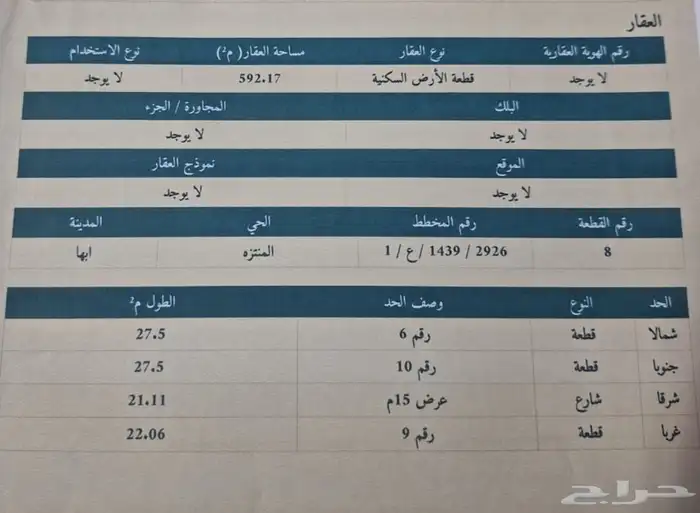 العقار
رقم الهوية العقارية نوع العقار مساحة العقار( م²) نوع الاستخدام
لا يوجد قطعة الأرض السكنية 592.17 لا يوجد
البلك المجاورة / الجزء
لا يوجد لا يوجد
الموقع نموذج العقار
لا يوجد لا يوجد
رقم القطعة رقم المخطط الحي المدينة
8 2926 / 1439 / ع / 1 المنتزه ابها
الحد النوع وصف الحد الطول م²
شمالا قطعة رقم 6 27.5
جنوبا قطعة رقم 10 27.5
شرقا شارع عرض 15م 21.11
غربا قطعة رقم 9 22.06
حراج